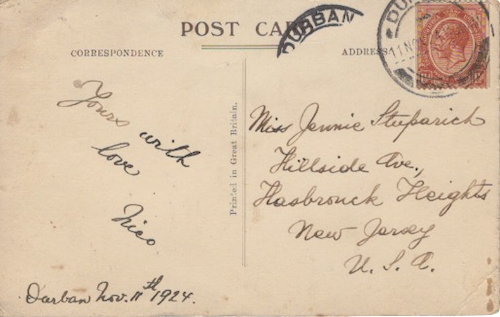 POST CARD
CORRESPONDENCE
ADDRESS
DURBAN
11 NO
Yours with
love
Nico
Durban Nov. 11th 1924.
Printed in Great Britain.
Miss Jennie Stuparich
Hillside Ave.,
Hasbrouck Heights
New Jersey
U. S. A.